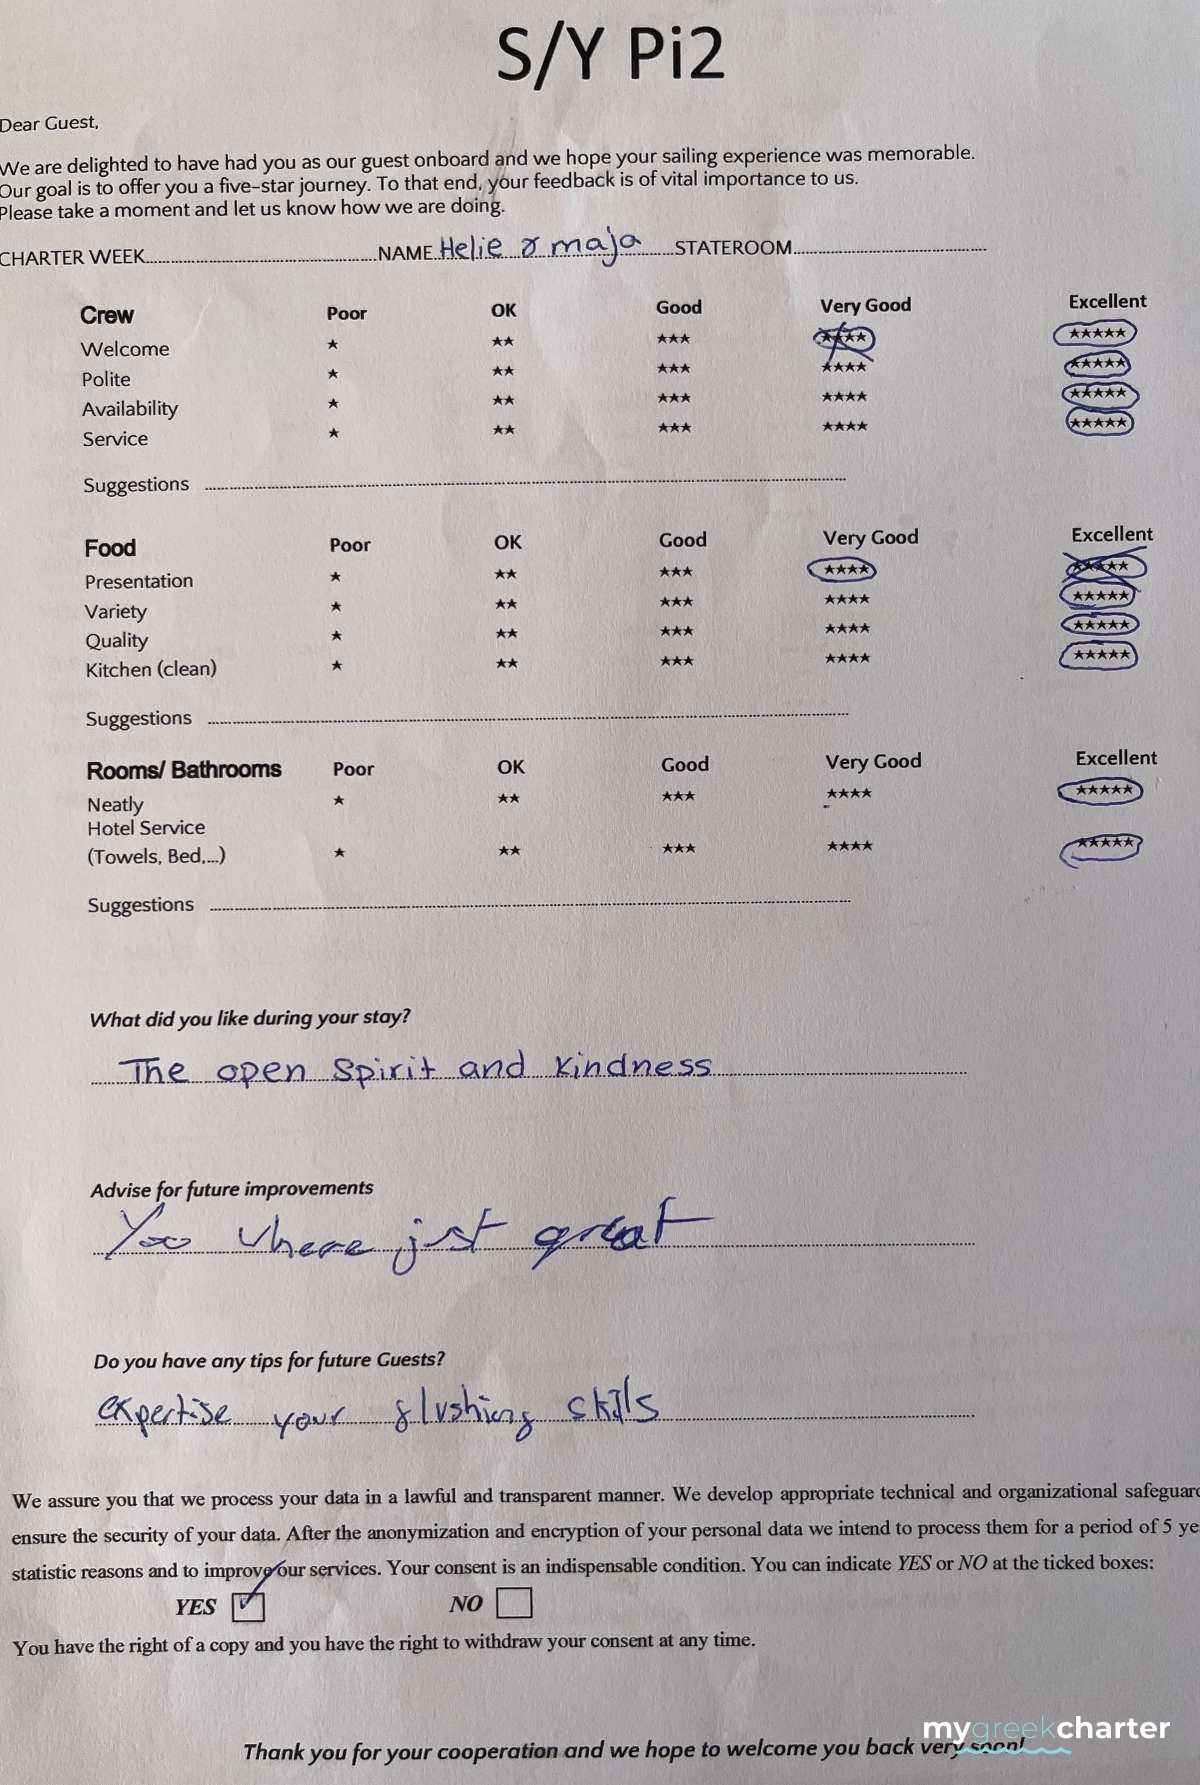 S/Y Pi2
Dear Guest,
We are delighted to have had you as our guest onboard and we hope your sailing experience was memorable.
Our goal is to offer you a five-star journey. To that end, your feedback is of vital importance to us.
Please take a moment and let us know how we are doing.
CHARTER WEEK NAME Helie & maja STATEROOM
Crew Poor OK Good Very Good Excellent
Welcome ★ ★★ ★★★ ★★★★ ★★★★★
Polite ★ ★★ ★★★ ★★★★ ★★★★★
Availability ★ ★★ ★★★ ★★★★ ★★★★★
Service ★ ★★ ★★★ ★★★★ ★★★★★
Suggestions
Food Poor OK Good Very Good Excellent
Presentation ★ ★★ ★★★ ★★★★ ★★★★★
Variety ★ ★★ ★★★ ★★★★ ★★★★★
Quality ★ ★★ ★★★ ★★★★ ★★★★★
Kitchen (clean) ★ ★★ ★★★ ★★★★ ★★★★★
Suggestions
Rooms/ Bathrooms Poor OK Good Very Good Excellent
Neatly ★ ★★ ★★★ ★★★★ ★★★★★
Hotel Service
(Towels, Bed,...) ★ ★★ ★★★ ★★★★ ★★★★★
Suggestions
What did you like during your stay?
The open spirit and kindness
Advise for future improvements
You where just great
Do you have any tips for future Guests?
expertise your flushing skills
We assure you that we process your data in a lawful and transparent manner. We develop appropriate technical and organizational safeguard
ensure the security of your data. After the anonymization and encryption of your personal data we intend to process them for a period of 5 ye
statistic reasons and to improve our services. Your consent is an indispensable condition. You can indicate YES or NO at the ticked boxes:
YES NO
You have the right of a copy and you have the right to withdraw your consent at any time.
mygreekcharter
Thank you for your cooperation and we hope to welcome you back very soon!